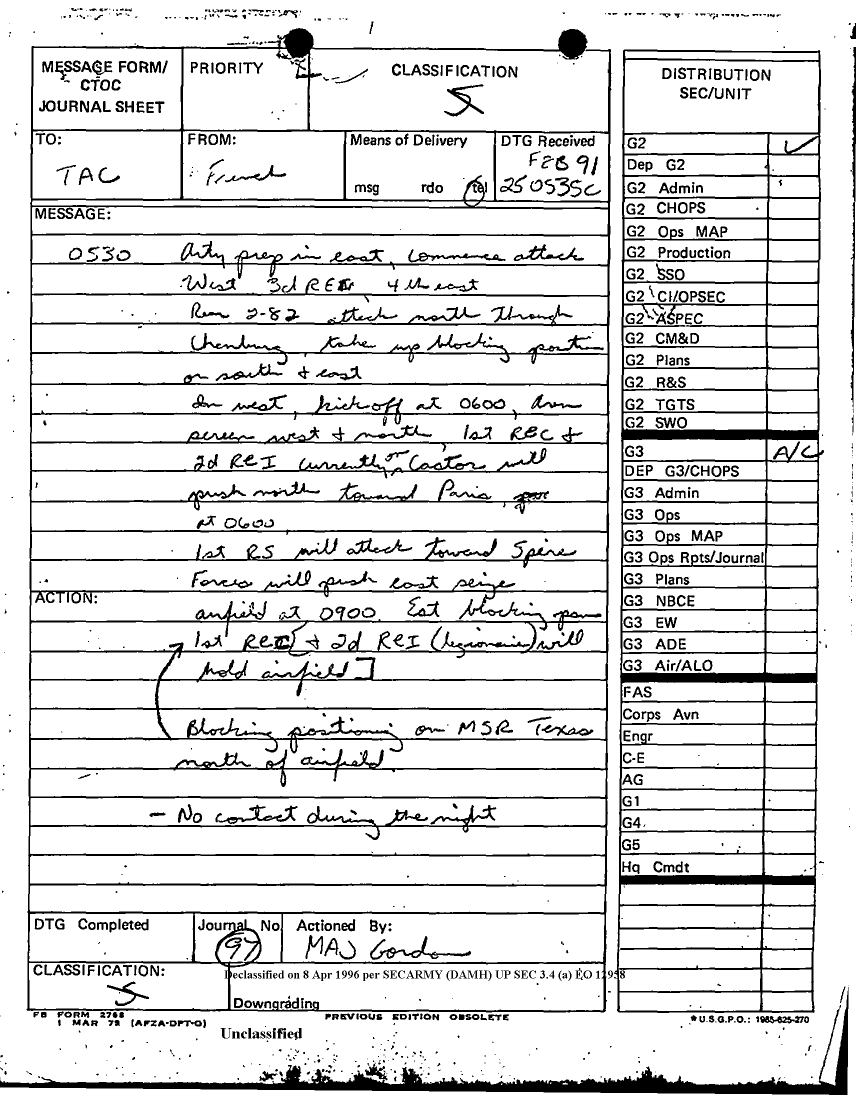 MESSAGE FORM/
CTOC
JOURNAL SHEET
PRIORITY
CLASSIFICATION
S
TO:
TAC
FROM:
French
Means of Delivery
msg rdo tel
DTG Received
FEB 91
250535C
MESSAGE:
0530 Arty prep in east, commence attack
West 3d REI, 4th east
Rear 2-82 attack north through
take up blocking position
on south + east
In west, kick off at 0600,
screen west + north, 1st REC +
2d REI currently on Castor will
push north toward Paris,
at 0600,
1st RS will attack toward Spire
Forces will push east seize
airfield at 0900. East blocking
ACTION:
1st REC + 2d REI (legionnaires) will
hold airfield]
Blocking positioning on MSR Texas
north of airfield.
— No contact during the night
DTG Completed
Journal No.
97
Actioned By:
MAJ Gordon
CLASSIFICATION:
S
Declassified on 8 Apr 1996 per SECARMY (DAMH) UP SEC 3.4 (a) EO 12958
Downgrading
FB FORM 2768
1 MAR 72 (AFZA-DPT-O)
PREVIOUS EDITION OBSOLETE
Unclassified
DISTRIBUTION
SEC/UNIT
G2 ✓
Dep G2
G2 Admin
G2 CHOPS
G2 Ops MAP
G2 Production
G2 SSO
G2 CI/OPSEC
G2 ASPEC
G2 CM&D
G2 Plans
G2 R&S
G2 TGTS
G2 SWO
G3 A/C
DEP G3/CHOPS
G3 Admin
G3 Ops
G3 Ops MAP
G3 Ops Rpts/Journal
G3 Plans
G3 NBCE
G3 EW
G3 ADE
G3 Air/ALO
FAS
Corps Avn
Engr
C-E
AG
G1
G4
G5
Hq Cmdt
*U.S.G.P.O.: 1985-625-270